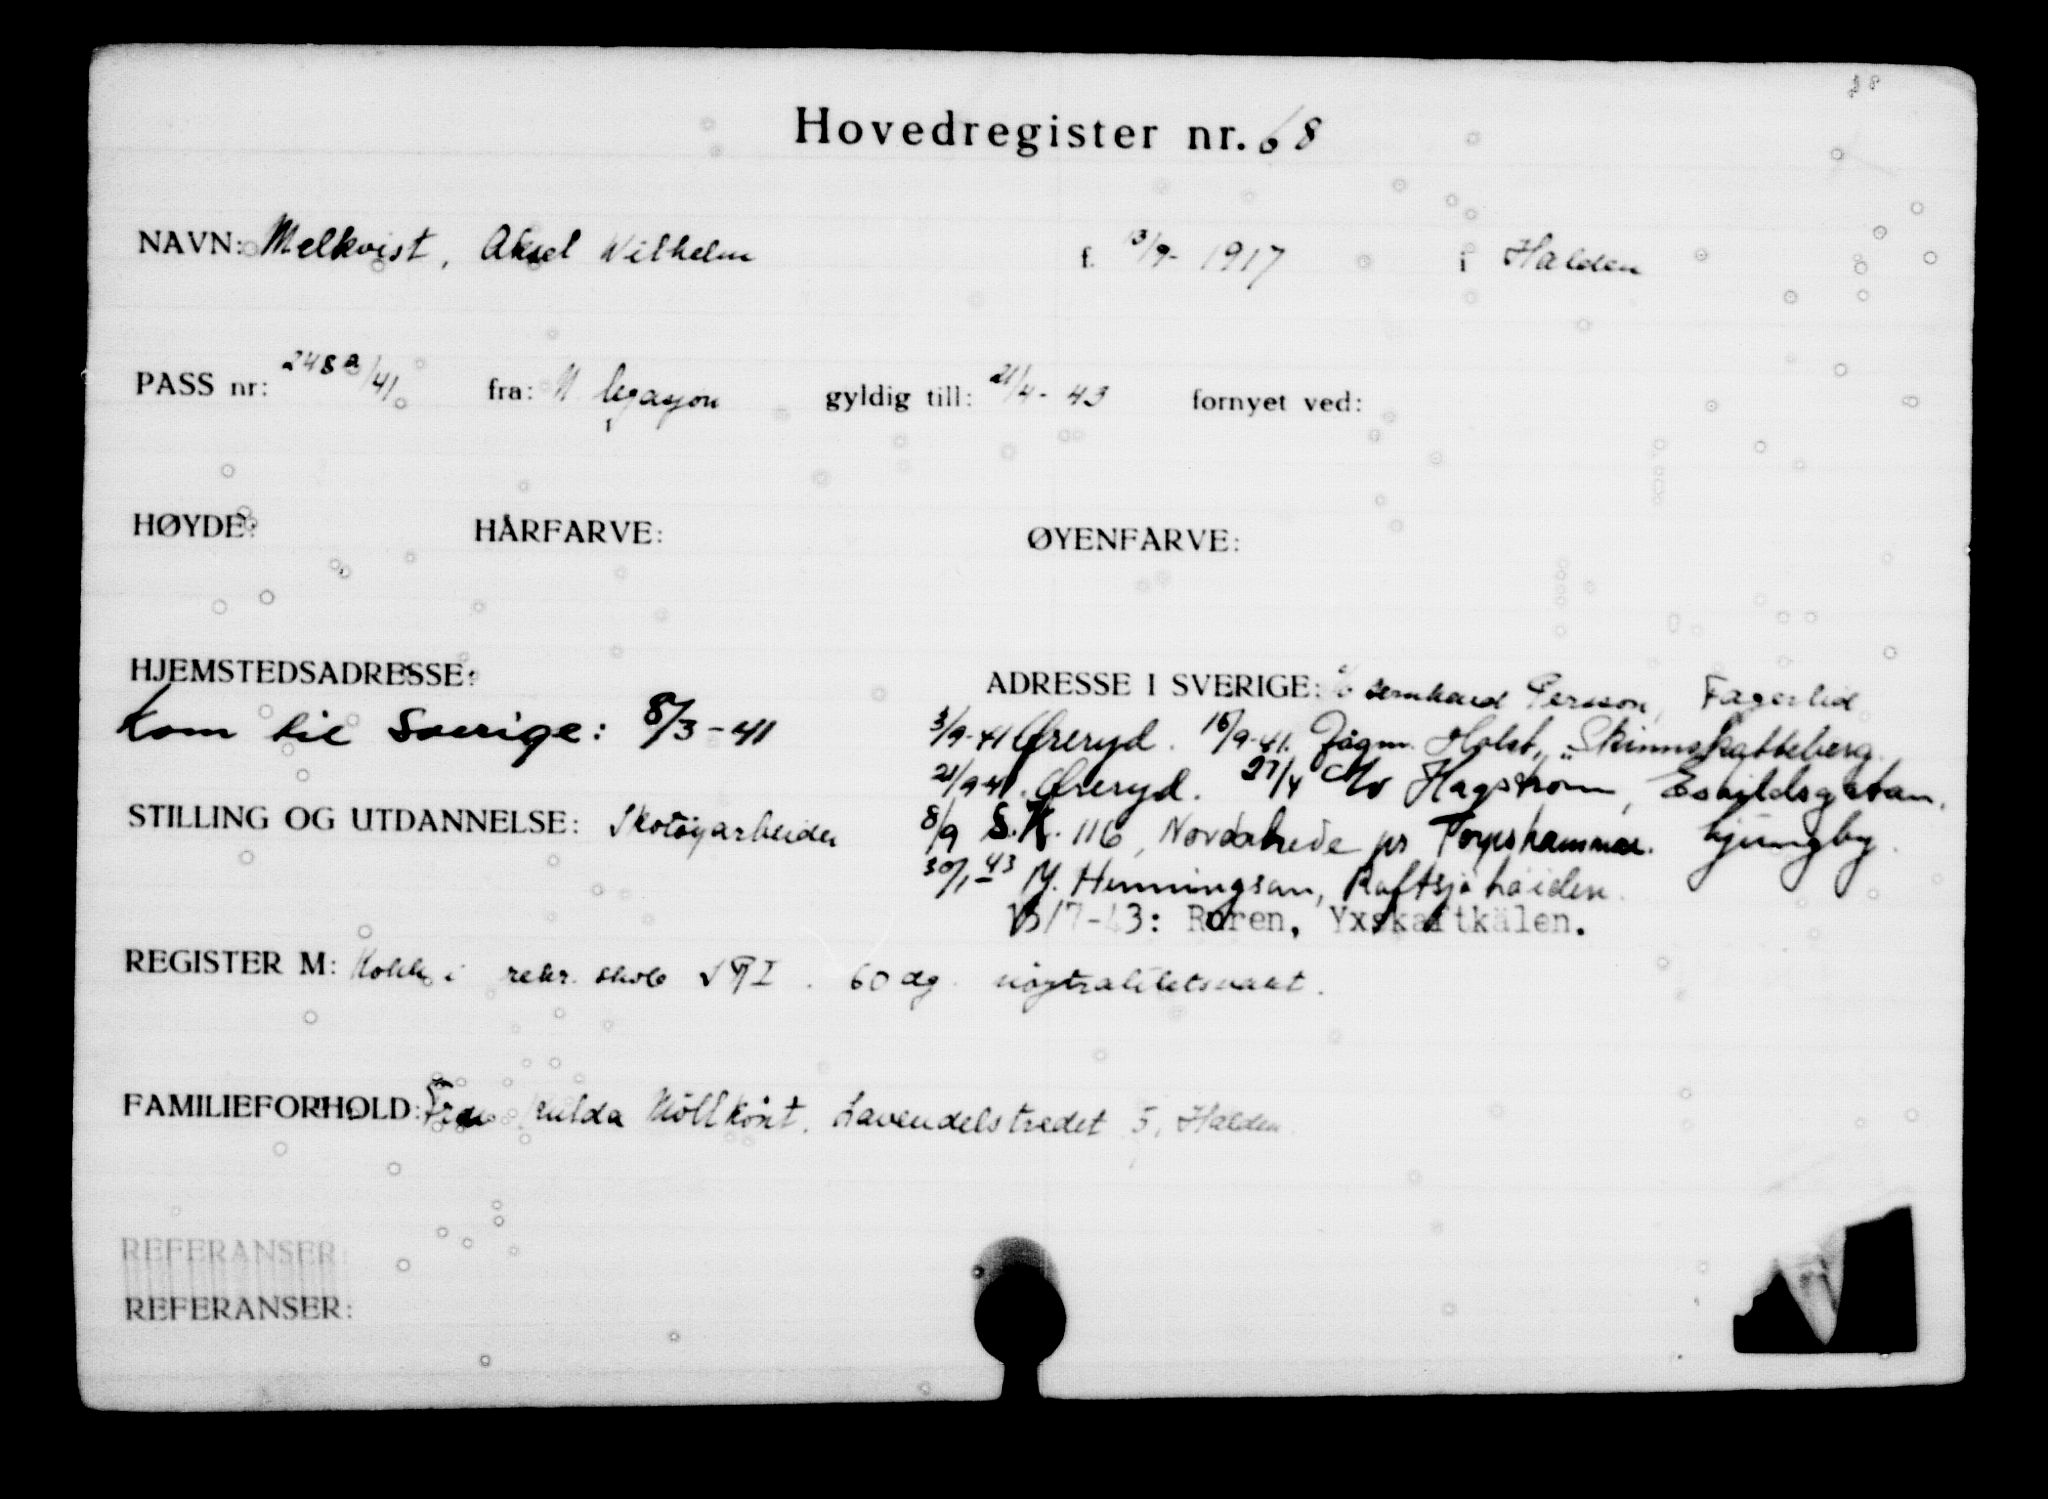 38
Hovedregister nr. 68
NAVN: Melkvist, Aksel Wilhelm f. 13/9- 1917 i Halden
PASS nr: 248a/41 fra: N legasjon gyldig till: 21/4- 43 fornyet ved:
HØYDE: HÅRFARVE: ØYENFARVE:
HJEMSTEDSADRESSE: ADRESSE I SVERIGE: c/o Bernhard Persson, Fagerlid
Kom til Sverige: 8/3-41 3/9-41 Øreryd. 16/9-41. Jägm. Holst, Skinnskatteberg.
21/9 41. Øreryd. 27/4 c/o Hagstrøm, Eskildsgatan,
STILLING OG UTDANNELSE: Skotøyarbeider 8/9 S.K. 116, Nordanede pr Torpshammar. Ljungby.
30/1 43 M. Henningsen, Raftsjöhöiden.
13/7-43: Rören, Yxskaftkälen.
REGISTER M: Kokk i rekr. skole IR I. 60 dg. nøytralitetsvakt.
FAMILIEFORHOLD: Frue Hulda Mölkvist. Lavendelstredet 5, Halden
REFERANSER:
REFERANSER: